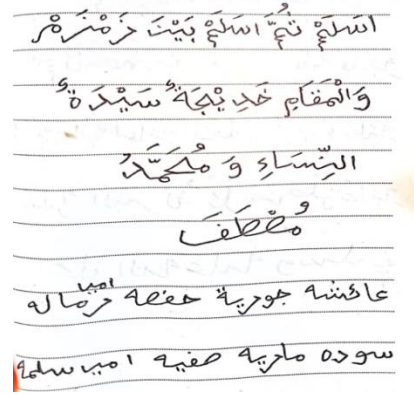 اَسَلَمْ ثُمَّ اَسَلَمْ بَيْتَ زَمْزَمْ
وَالْمَقَامِ خَدِيْجَةُ سَيْدَةُ
النِّسَاءِ وَ مُحَمَّدُ
مُصْطَفَ
عائشه جويرية حفصه امير رماله
سوده مارية صفيه امير سلمة